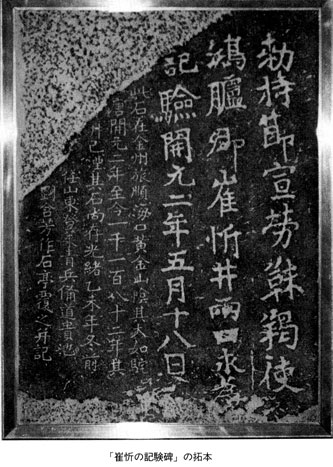 勅持節宣勞靺羯使
鴻臚卿崔忻井兩口永為
記驗開元二年五月十八日
此石在金州旅順海口黃金山陰其大如駝
唐開元二年至今一千一百八十二年其
井已湮其石尚存光緒乙未年冬前
任山東登萊青兵備道貴池
劉含芳作石亭覆之并記
「崔忻の記験碑」の拓本